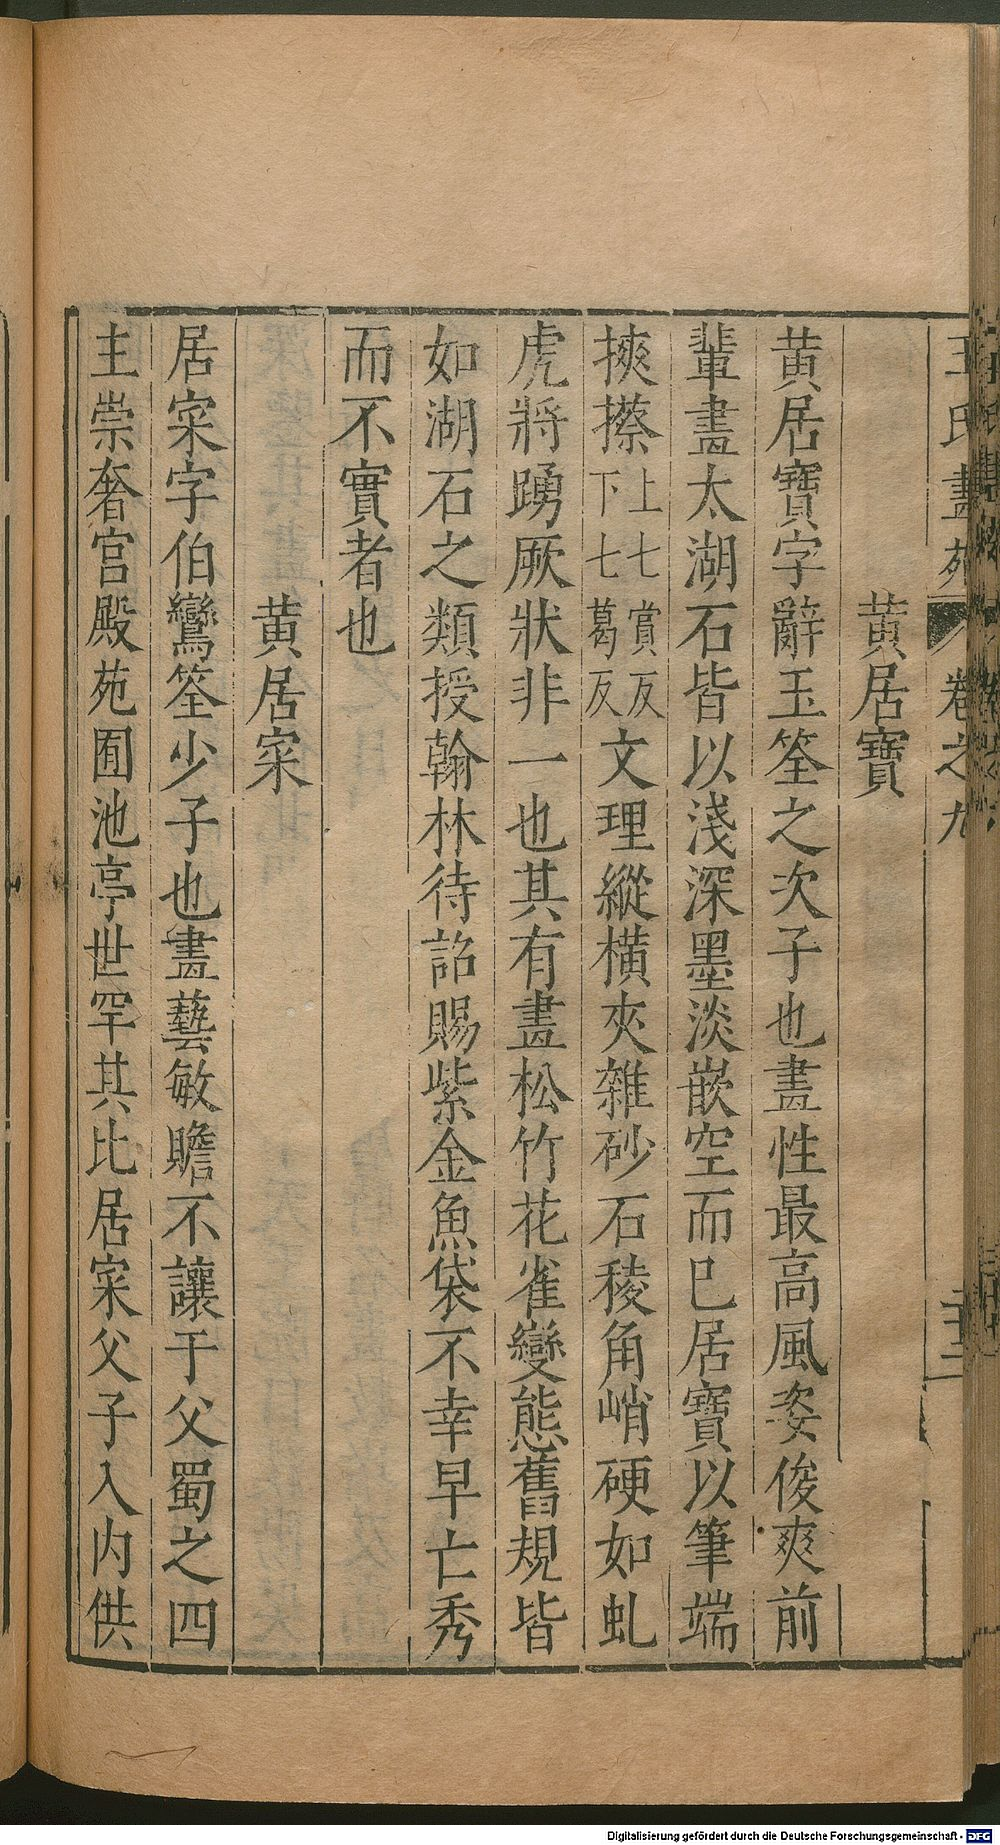 王氏畫苑 卷之九 三十二
黃居寶
黃居寶字辭玉筌之次子也畫性最高風姿俊爽前
輩畫太湖石皆以淺深墨淡嵌空而已居寶以筆端
摤擦上七賞反下七葛反文理縱橫夾雜砂石稜角峭硬如虬
虎將踴厥狀非一也其有畫松竹花雀變態舊規皆
如湖石之類授翰林待詔賜紫金魚袋不幸早亡秀
而不實者也
黃居寀
居寀字伯鸞筌少子也畫藝敏贍不讓于父蜀之四
主崇奢宮殿苑囿池亭世罕其比居寀父子入內供
Digitalisierung gefördert durch die Deutsche Forschungsgemeinschaft - DFG